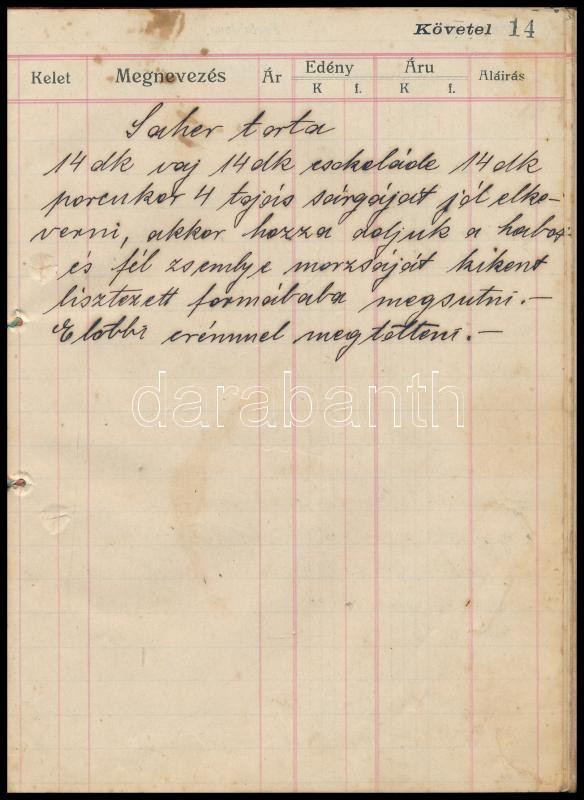 Követel 14
Kelet Megnevezés Ár Edény Áru Aláirás
K f. K f.
Saher torta
14 dk vaj 14 dk csokoláde 14 dk
porcukor 4 tojás sárgáját jól elke-
verni, akkor hozza adjuk a habot
és fél zsemlye morzsáját kikent
lisztezett formábaba megsutni.-
Elobbi crémmel megtölteni.-
darabanth